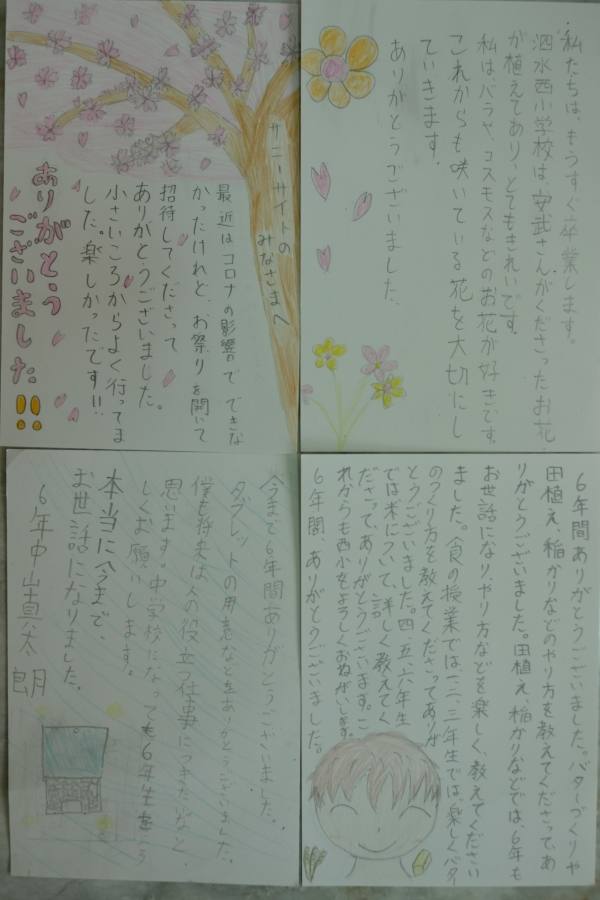 サニーサイトの
みなさまへ
最近はコロナの影響で できな
かったけれど、お祭りを開いて
招待してくださって
ありがとうございました。
小さいころからよく行ってま
した。楽しかったです!!
ありがとう
ございました!!
私たちは、もうすぐ卒業します。
泗水西小学校は、安武さんがくださったお花
が植えてあり、とてもきれいです。
私はバラや、コスモスなどのお花が好きです。
これからも咲いている花を大切にし
ていきます。
ありがとうございました。
今まで6年間ありがとうございました。
タブレットの用意などをありがとうございました。
僕も将来は人の役立つ仕事につきたいなと、
思います。中学校になっても6年生をよろ
しくお願いします。
本当に今まで、
お世話になりました。
6年中山真太朗
6年間ありがとうございました。バターづくりや
田植え、稲かりなどのやり方を教えてくださって、あ
りがとうございました。田植え、稲かりなどでは、6年も
お世話になり、やり方などを楽しく、教えてください
ました。食の授業では、一、二、三年生では、楽しくバタ
のつくり方を教えてくださってありが
とうございました。四、五、六年生
では米について、詳しく教えてく
ださって、ありがとうございます。こ
れからも西小をよろしくおねがいします。
6年間、ありがとうございました。